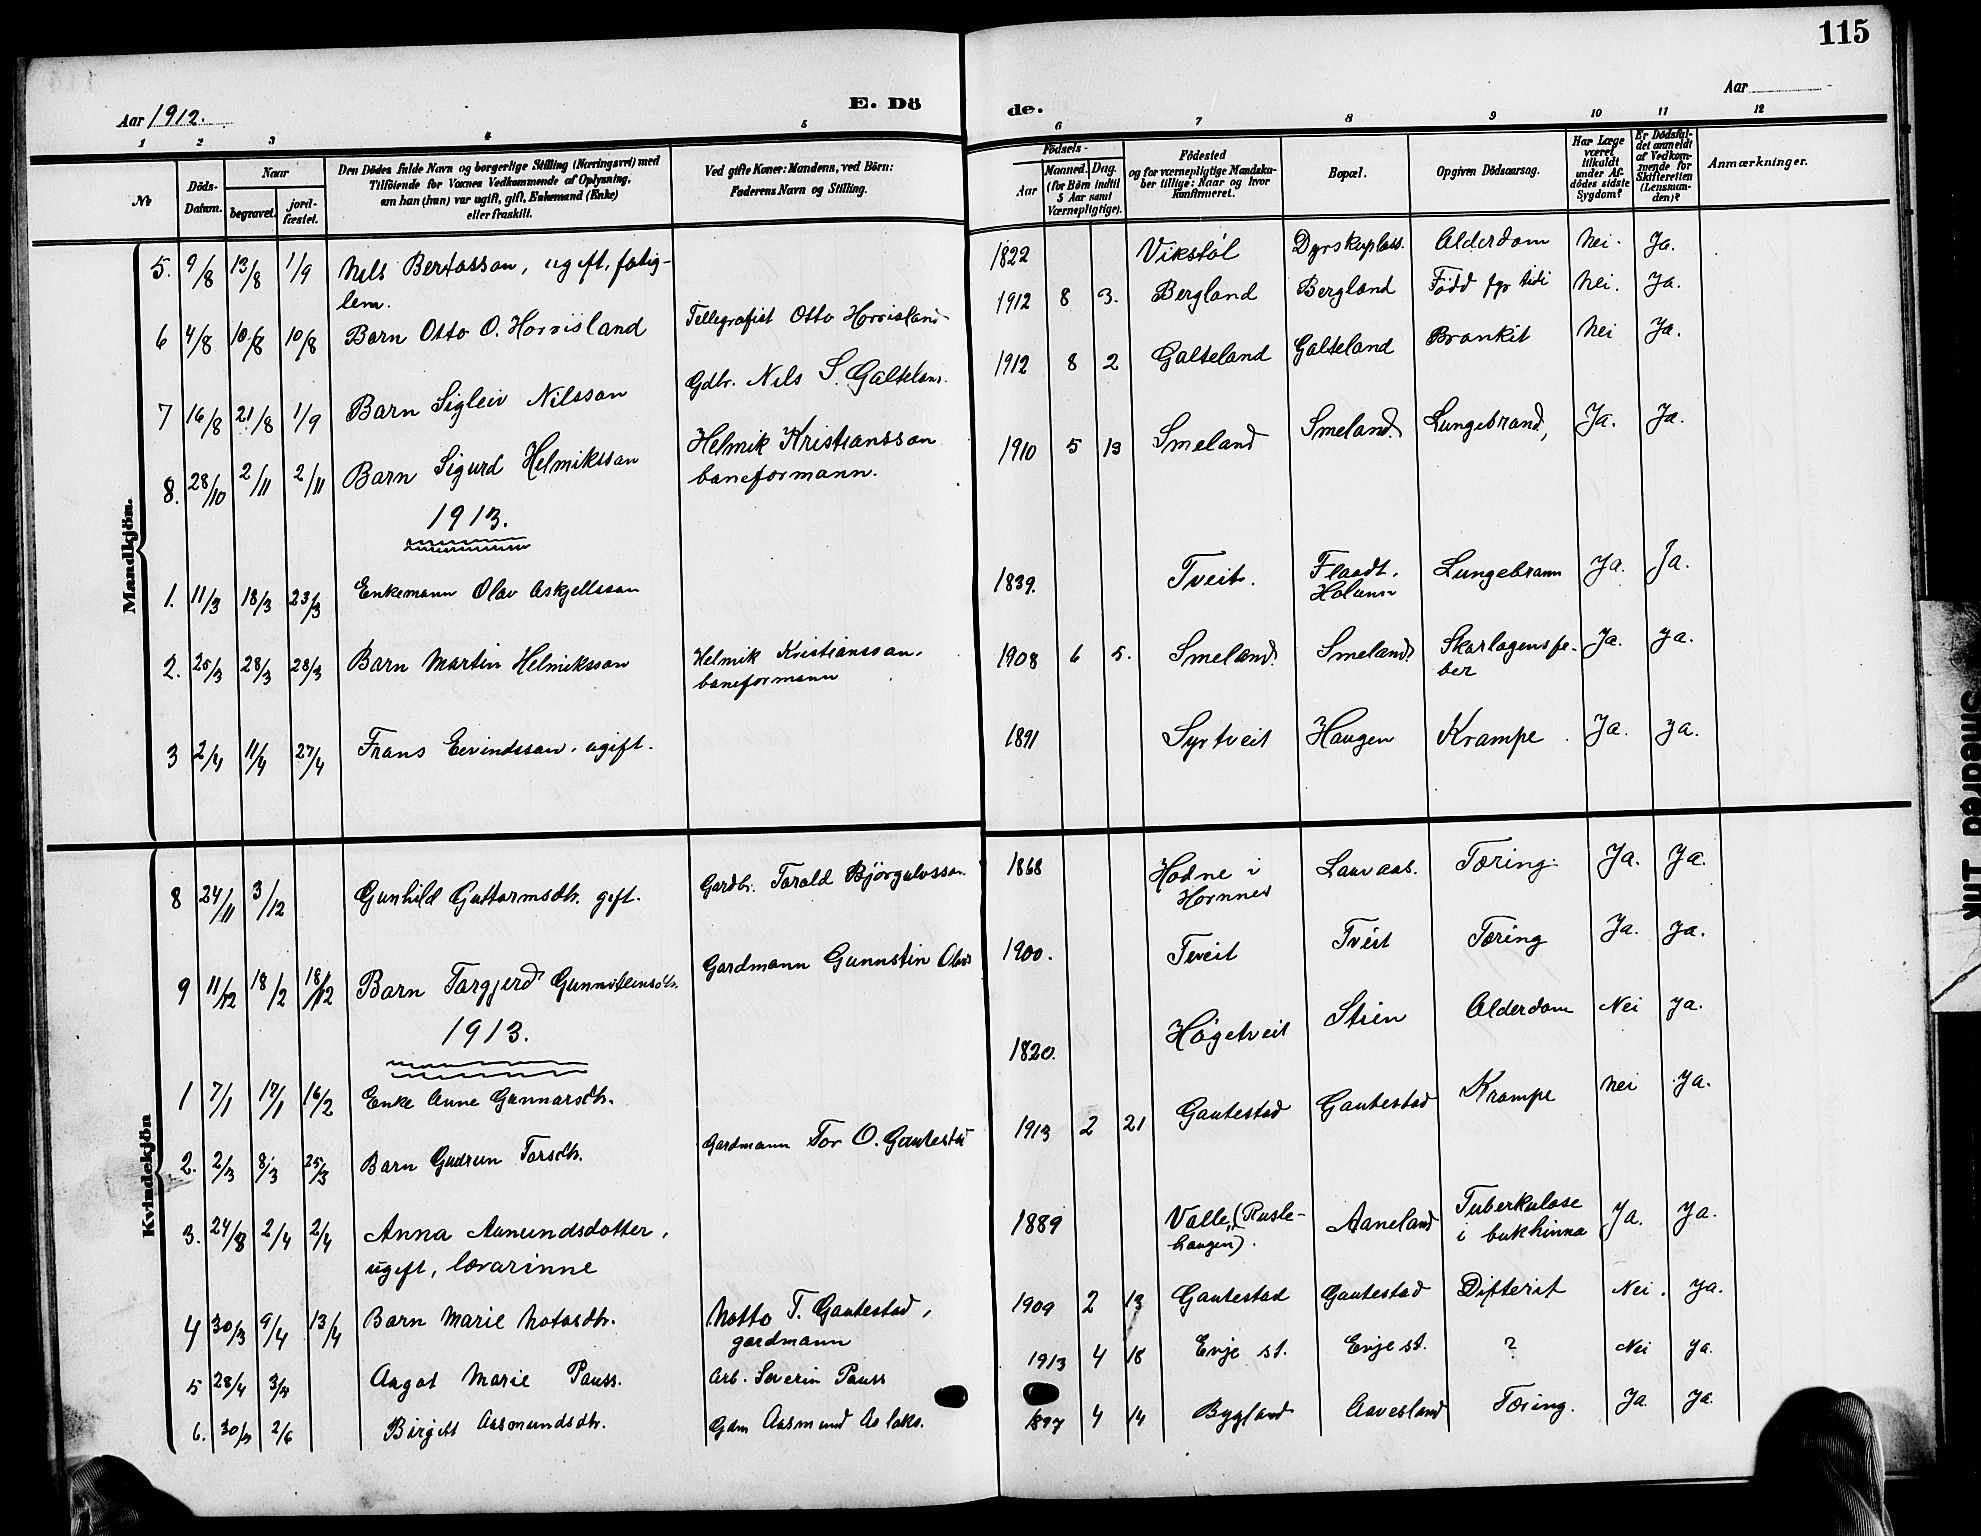 115
Aar 1912.
E. Dö
de.
Aar
1 2 3 4 5 6 7 8 9 10 11 12
No
Döds-Datum.
Naar
begravet.
jord-fæstet.
Den Dödes fulde Navn og borgerlige Stilling (Næringsvei) med
Tilföiende for Voxnes Vedkommende af Oplysning,
om han (hun) var ugift, gift, Enkemand (Enke)
eller fraskilt.
Ved gifte Koner: Mandens, ved Börn:
Faderens Navn og Stilling.
Födsels-
Aar
Maaned. Dag.
(for Börn indtil
5 Aar samt
Værnepligtige).
Födested
og for værnepligtige Mandska-
ber tillige: Naar og hvor
konfirmeret.
Bopæl.
Opgiven Dödsaarsag.
Har Læge
været
tilkaldt
under Af-
dödes sidste
Sygdom?
Er Dödsfal-
det anmeldt
af Vedkom-
mende for
Skifteretten
(Lensman-
den)?
Anmærkninger.
Mandkjön.
5. 9/8 13/8 1/9 Nels Bertosson, ugift, fatig-
lem. 1822 Vikstøl Dyrskuplass. Alderdom Nei. Ja.
6 4/8 10/8 10/8 Barn Otto O. Horrisland Tellegrafist Otto Horrisland 1912 8 3. Bergland Bergland Född fyr tidi Nei. Ja.
7 16/8 21/8 1/9 Barn Sigleiv Nilsson Gdbr. Nils S. Galteland 1912 8 2 Galteland Galteland Bronkit Nei Ja.
8. 28/10 2/11 2/11 Barn Sigurd Helmiksson Helmik Kristiansson
baneformann. 1910 5 13 Smeland Smeland Lungebrand, Ja. Ja.
1913.
1. 11/3 18/3 23/3 Enkemann Olav Askjellsson 1839. Tveit. Flaadt, Lungebrann Ja. Ja.
2. 25/3 28/3 28/3 Barn Martin Helmiksson Helmik Kristiansson,
baneformann 1908 6 5. Smeland Smeland Skarlagensfe-
ber Ja. Ja.
3 2/4 11/4 27/4 Frans Eevindsson, ugift. 1891 Syrtveit Haugen Krampe Ja. Ja.
Kvindekjön
8 24/11 3/12 Gunhild Guttormsdtr. gift. Gardbr. Torald Björgulvsson 1868 Hodne i
Hornnes Lauvaas. Tæring. Ja. Ja.
9 11/12 18/2 18/12 Barn Torgjerd Gunnsteinsdtr. Gardmann Gunnstin Olavs 1900. Tveit Tveit Tæring Ja. Ja.
1913.
1 7/1 17/1 16/2 Enke Anne Gunnarsdtr. 1820. Høgetveit Stien Alderdom Nei Ja.
2. 2/3 8/3 25/3 Barn Gudrun Torsdtr. Gardmann Tor O. Gautestad 1913 2 21 Gautestad Gautestad Krampe Nei Ja.
3. 24/3 2/4 2/4 Anna Aamundsdotter,
ugift, lærarinne 1889 Valle, (Rusle-
haugen). Aaneland Tuberkulose
i bukhinna Ja. Ja.
4 30/3 9/4 13/4 Barn Marie Notosdtr. Notto T. Gautestad,
gardmann 1909 2 13 Gautestad Gautestad Difterit Nei. Ja.
5 28/4 3/5 Aagot Marie Pauss. Arb. Severin Pauss 1913 4 18 Evje st. Evje st. ? Nei Ja.
6. 30/5 2/6 Birgitt Aasmundsdtr. Gdm Aasmund Aslaks. 1897 4 14 Bygland Aavesland Tæring. Ja. Ja.